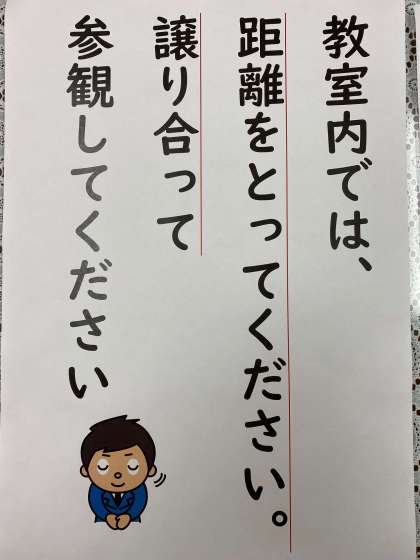 教室内では、
距離をとってください。
譲り合って
参観してください